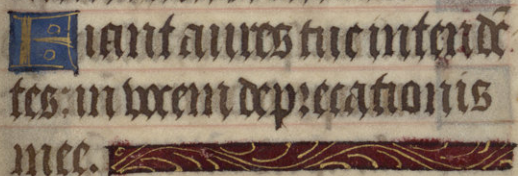 Fiant aures tue intendē
tes: in vocem deprecationis
mee.